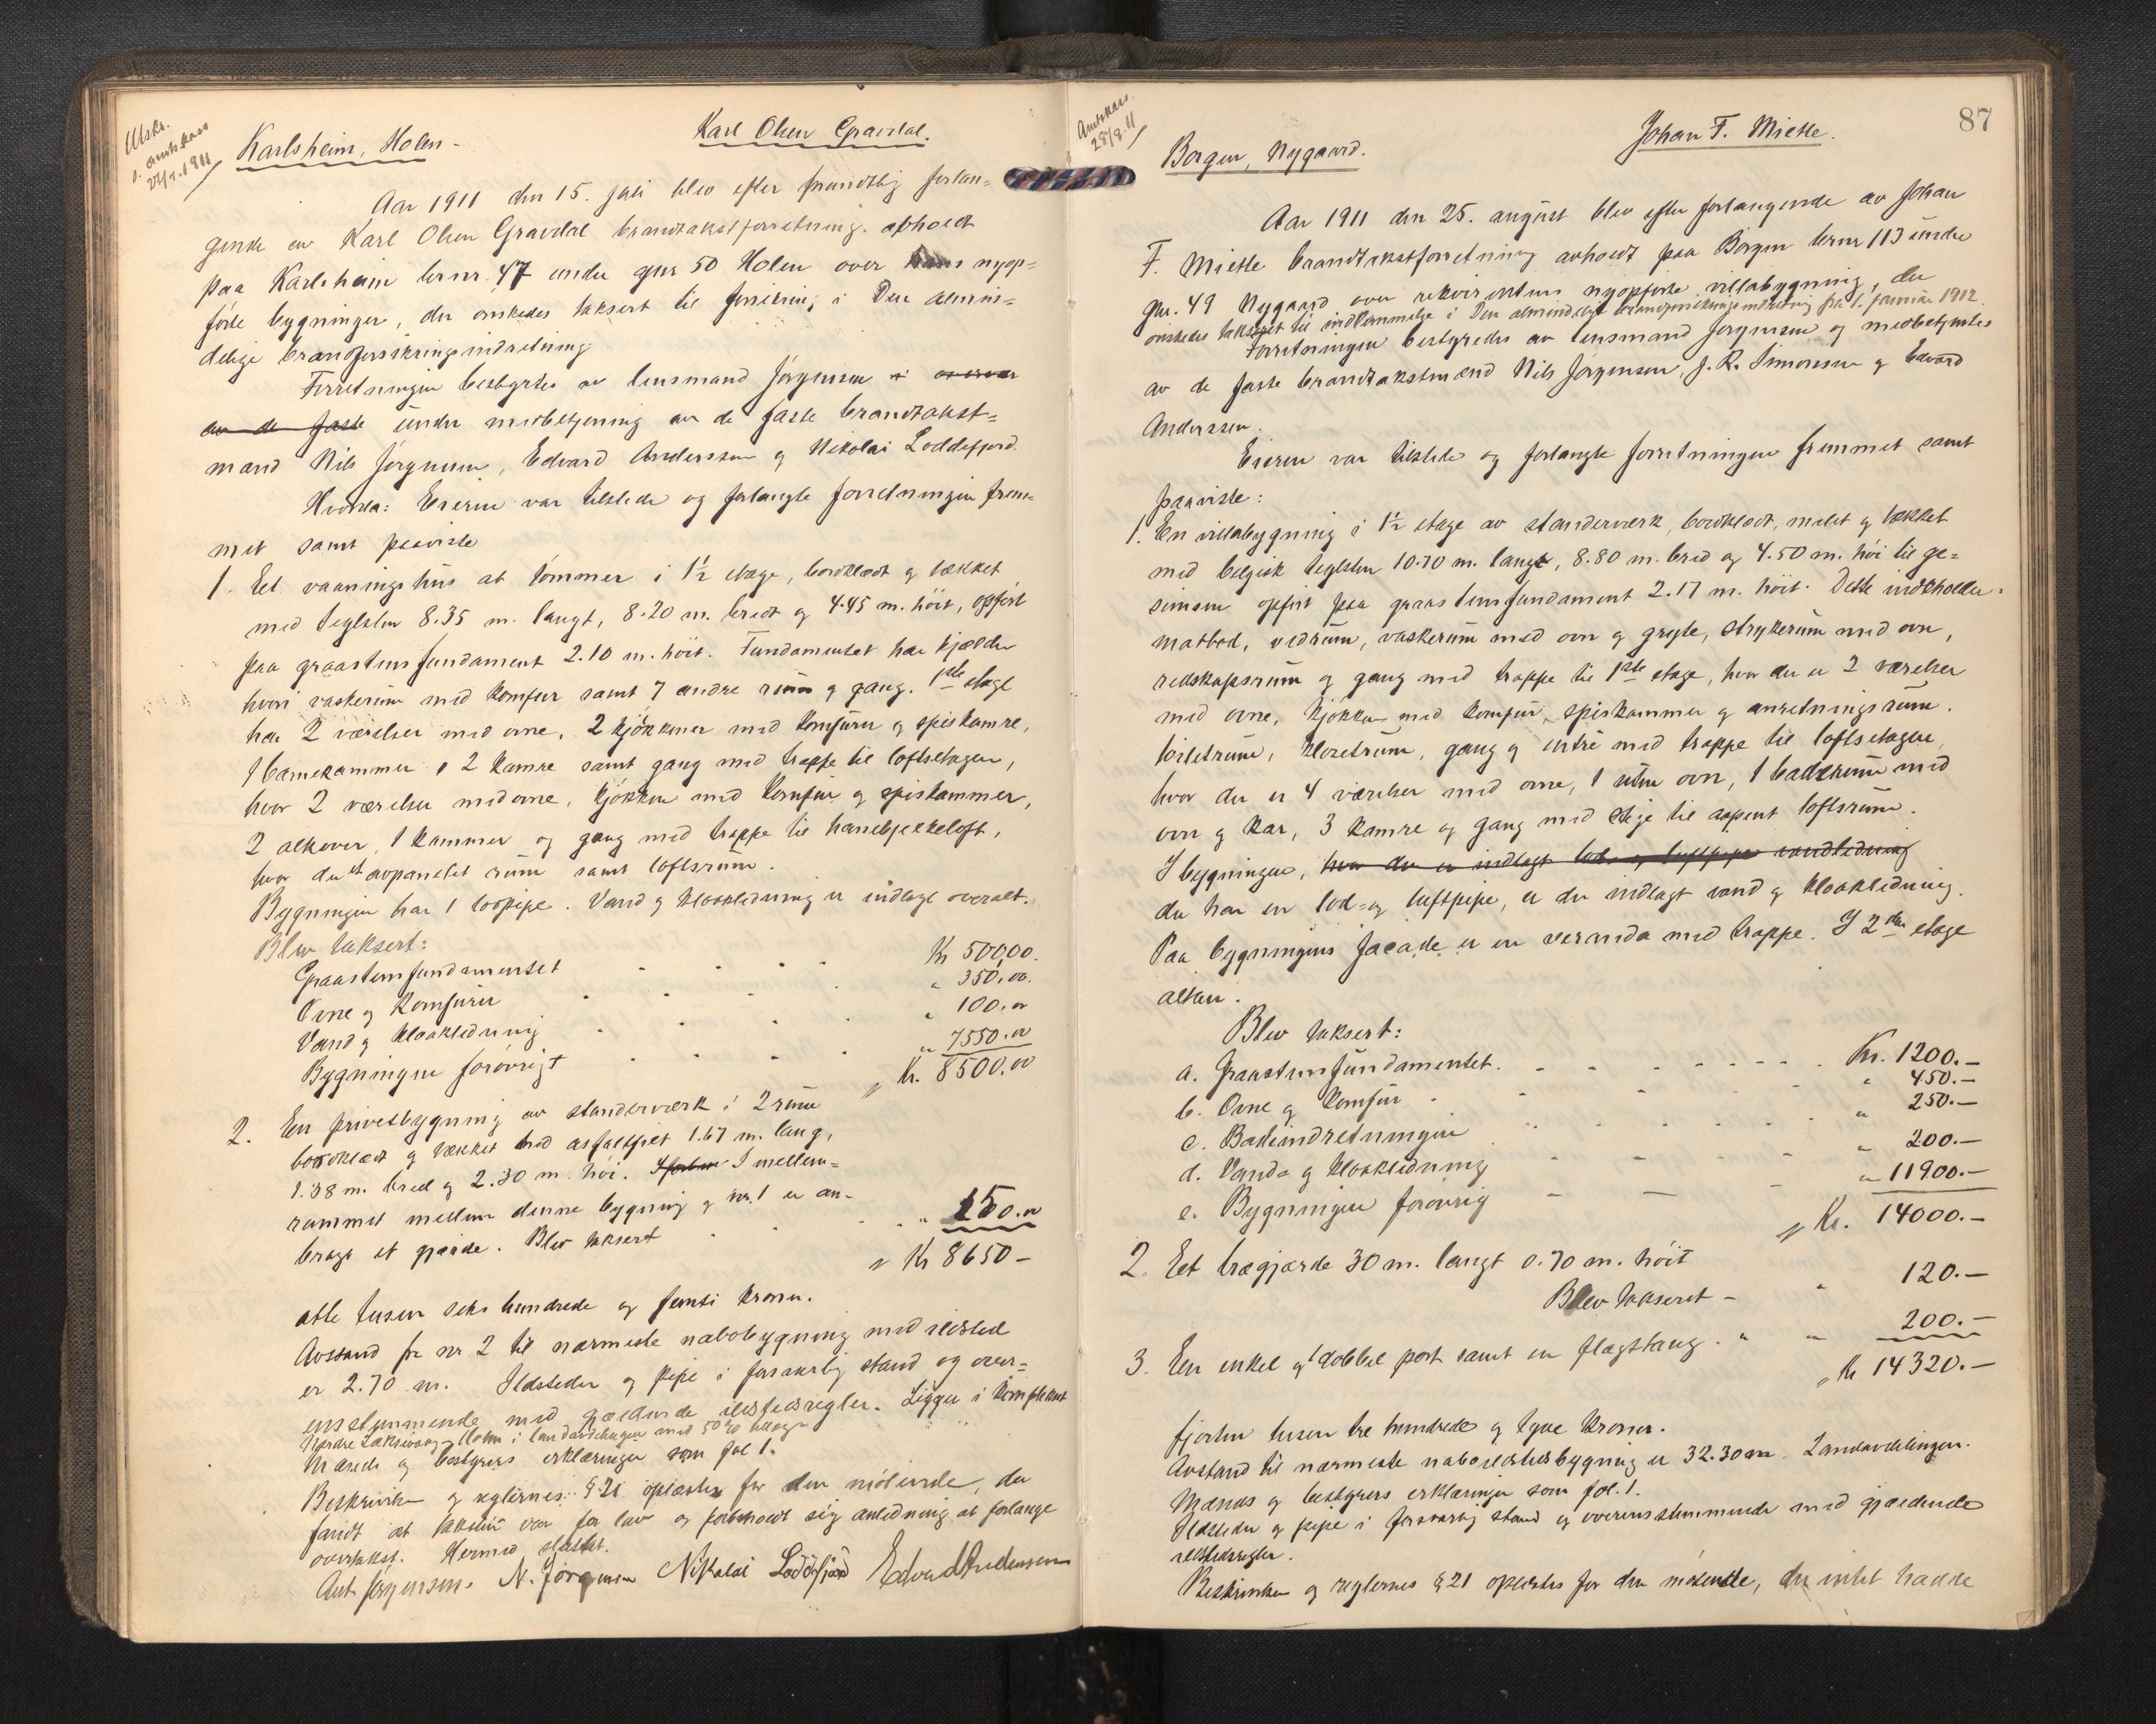 Utskr.
amtskass
Karlsheim, Holen -
Karl Olsen Gravdal.
Aar 1911 den 15. juli blev efter forlan=
gende av Karl Olsen Gravdal brandtakstforretning avholdt
paa Karlsheim brnr. 47 under gnr 50 Holen over hans nyop=
førte bygninger, der ønskedes taksert til forsikring i Den almin=
delige brandforsikringsindretning
Forretningen bestyrtes av lensmand Jørgensen
av de faste under medbetjening av de faste brandtakst=
mænd Nils Jørgensen, Edvard Anderssen og Nikolai Loddefjord.
Hvorda: Eieren var tilstede og forlangte forretningen frem=
met samt paaviste
1. Eet vaaningshus at tømmer i 1½ etage, bordklædt og tækket
med teglsten 8.35 m. langt, 8.20 m. bredt og 4.45 m. høit, opført
paa graastensfundament 2.10 m. høit. Fundamentet har kjælder
hvori vaskerum med komfur samt 7 andre rum og gang. 1ste etage
har 2 værelser med ovne, 2 kjøkkener med komfurer og spiskamre,
1 barnekammer, 2 kamre samt gang med trappe til loftsetagen,
hvor 2 værelser med ovne, kjøkken med komfur og spiskammer,
2 alkover, 1 kammer og gang med trappe til hanebjelkeloft,
hvor der et avpanelet rum samt loftsrum.
Bygningen har 1 lodpipe. Vand og kloakledning er indlagt overalt.
Blev taksert:
Graastensfundamentet Kr 500,00.
Ovne og komfurer " 350,00.
Vand og kloakledning " 100.00
Bygningen forøvrigt " 7550.00
Kr. 8500.00
2. En privetbygning av standerværk i 2 rum
bordklædt og tækket med asfaltfilt 1.67 m. lang,
1.38 m. bred og 2.30 m. høi. I mellem=
rummet mellem denne bygning og nr. 1 er an-
bragt et gjærde. Blev taksert " 150.00
Kr 8650 -
otte tusen seks hundrede og femti kroner.
Avstand fra nr 2 til nærmeste nabobygning med ildsted
er 2.70 m. Ildsteder og pipe i forsvarlig stand og over=
ensstemmende med gjældende ildstedsregler. Ligger i komplekset
Nordre Laksevaag - Holen i landavdelingen med 50% tillæg
Mænds og bestyrers erklæringer som fol 1.
Beskrivelsen og reglernes § 21 oplæstes for den møtende, der
fandt at taksten var for lav og forbeholdt sig anledning at forlange
overtakst. Hermed sluttet.
Ant Jørgensen. N. Jörgensen Nikolai Loddefjord Edvard Andersen
Amtskass.
28/9.11
87
Borgen, Nygaard.
Johan F. Mietle.
Aar 1911 den 25. august blev efter forlangende av Johan
F. Mietle brandtakstforretning avholdt paa Borgen brnr 113 under
gnr. 49 Nygaard over rekvirentens nyopførte villabygning, der
ønskedes taksert til indlemmelse i Den almindelige brandforsikringsindretning fra 1. januar 1912.
Forretningen bestyredes av lensmand Jørgensen og medbetjentes
av de faste brandtakstmænd Nils Jørgensen, J. R. Simonsen og Edvard
Anderssen.
Eieren var tilstede og forlangte forretningen fremmet samt
paaviste:
1. En villabygning i 1½ etage av standerværk, bordklædt, malet og tækket
med belgisk teglsten 10.70 m. langt, 8.80 m. bred og 4.50 m. høi til ge=
simsen opført paa graastensfundament 2.17 m. høit. Dette indeholder
matbod, vedrum, vaskerum med ovn og gryte, strykerum med ovn,
redskapsrum og gang med trappe til 1ste etage, hvor der er 2 værelser
med ovne, kjøkken med komfur, spiskammer og anretningsrum.
toiletrum, klosetrum, gang og entré med trappe til loftsetagen,
hvor der er 4 værelser med ovne, 1 uten ovn, 1 badkerum med
ovn og kar, 3 kamre og gang med stige til aapent loftsrum.
I bygningen, hvor der er indlagt lod- og luftpipe vandledning
der har en lod- og luftpipe, er der indlagt vand og kloakledning.
Paa bygningens facade er en veranda med trappe. I 2den etage
altan.
Blev taksert:
a. Graastensfundamentet. Kr. 1200.—
b. Ovne og komfur " 450.—
c. Badeindretningen " 250.—
d. Vand- og kloakledning " 200.—
e. Bygningen forøvrig " 11900.—
Kr. 14000.—
2. Eet trægjærde 30 m. langt 0.70 m. høit
Blev taksert — " 120.—
3. En enkel og 1 dobbel port samt en flagstang. " " 200.—
Kr 14320.—
fjorten tusen tre hundrede og tyve kroner.
Avstand til nærmeste naboildstedsbygning er 32.30 m. Landavdelingen.
Mænds og bestyrers erklæringer som fol. 1.
Ildsteder og pipe i forsvarlig stand og overensstemmende med gjældende
ildstedsregler.
Beskrivelsen og reglernes § 21 oplæstes for den møtende, der intet hadde